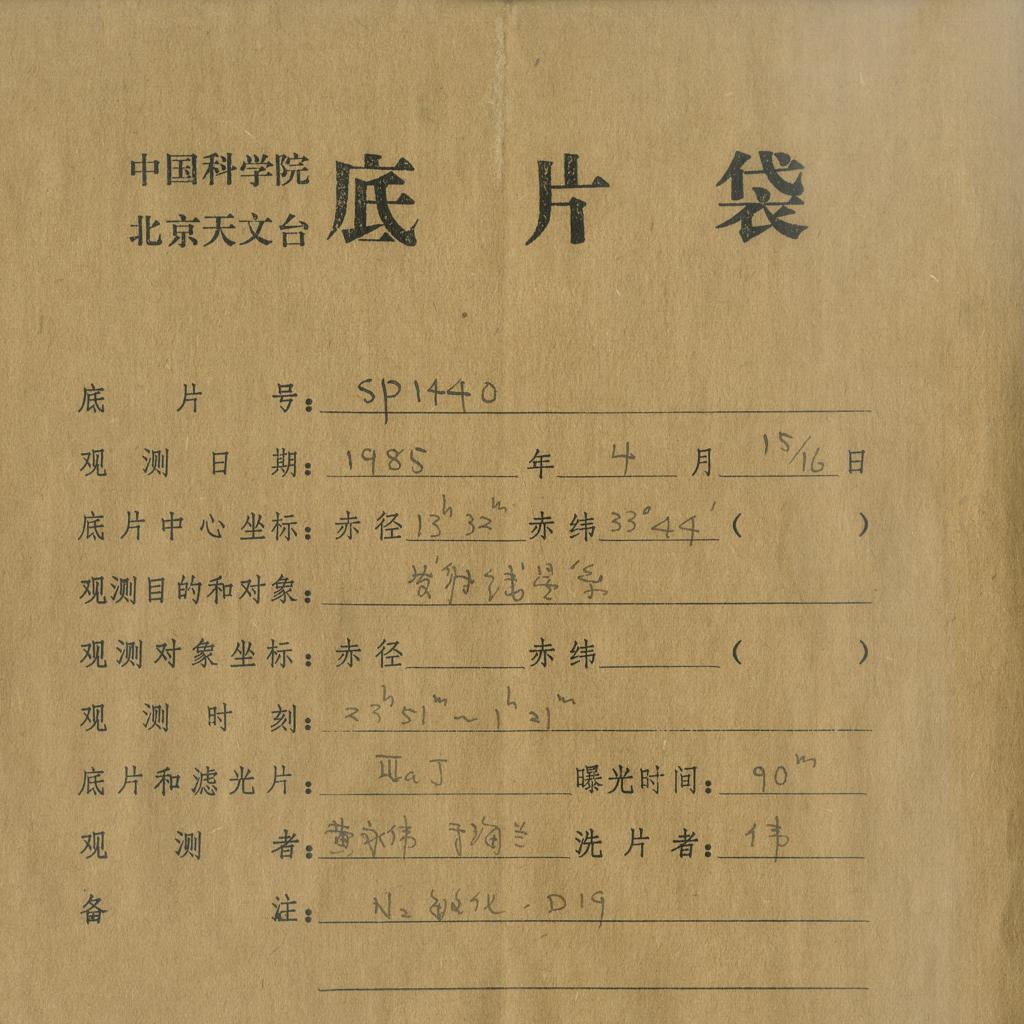 中国科学院
北京天文台
底片袋
底片号: SP1440
观测日期: 1985年 4月 15/16日
底片中心坐标: 赤径 13h 32m 赤纬 33°44′ ( )
观测目的和对象: 发射线星系
观测对象坐标: 赤径 赤纬 ( )
观测时刻: 23h51m~1h21m
底片和滤光片: IIIaJ 曝光时间: 90m
观测者: 黄永伟 于 兰 洗片者: 伟
备注: N2 敏化 . D19